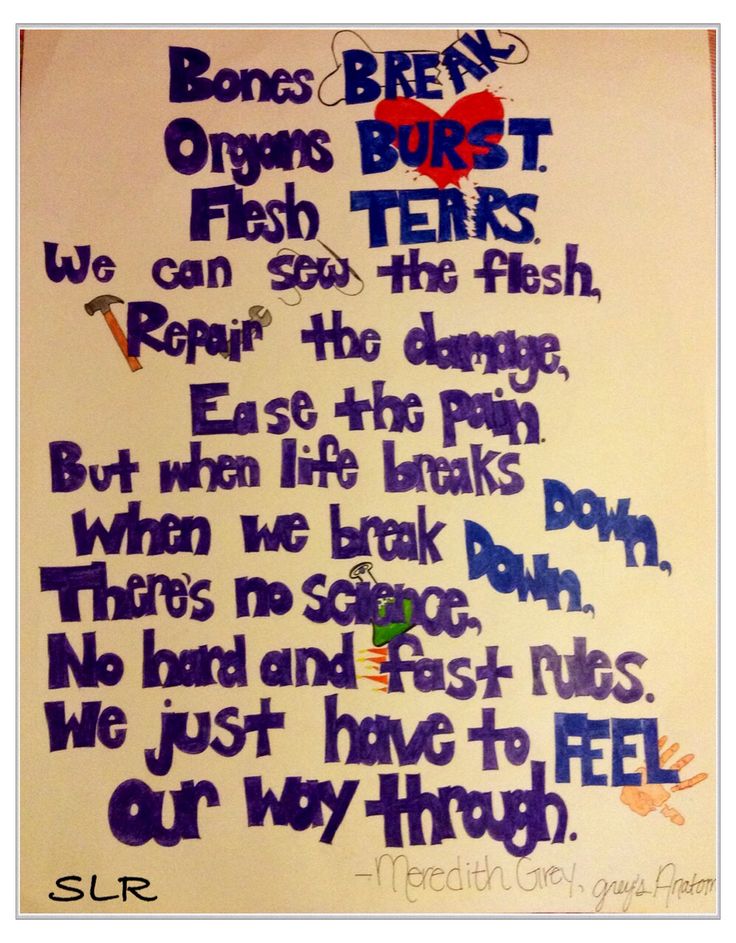 Bones BREAK
Organs BURST.
Flesh TEARS.
We can sew the flesh,
Repair the damage,
Ease the pain.
But when life breaks DOWN,
When we break DOWN,
There's no science,
No hard and fast rules.
We just have to FEEL
our way through.
-Meredith Grey, grey's Anatom
SLR